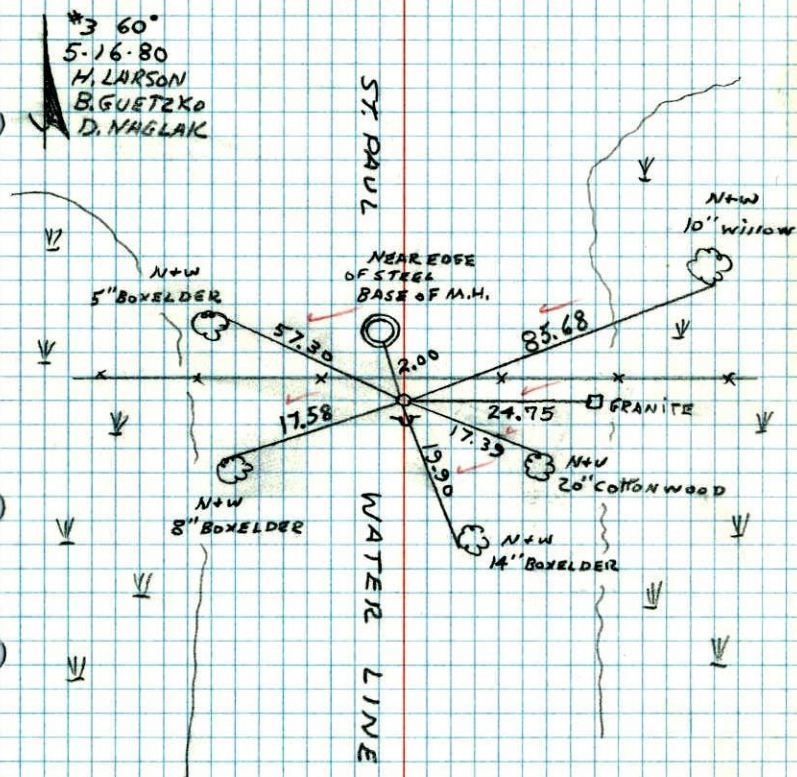 #3 60°
5-16-80
H. LARSON
B. GUETZKO
D. NAGLAK
ST. PAUL
N+W
10" WILLOW
NEAR EDGE
OF STEEL
BASE OF M.H.
N+W
5" BOXELDER
57.30
2.00
85.68
17.58
24.75
GRANITE
17.39
19.90
N+W
20" COTTONWOOD
N+W
8" BOXELDER
N+W
14" BOXELDER
WATER LINE